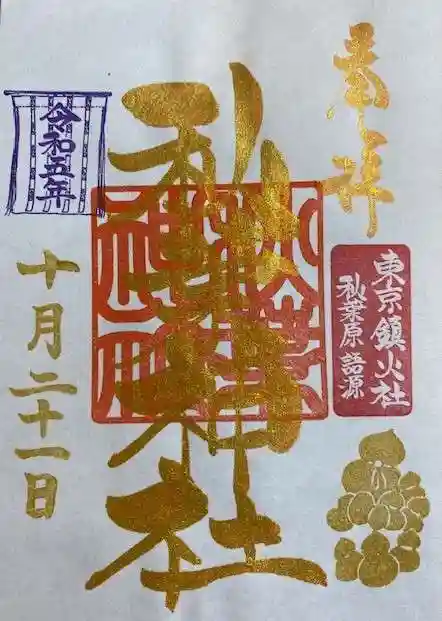 奉拝
東京鎮火社
秋葉原語源
秋葉神社
令和五年
十月二十一日